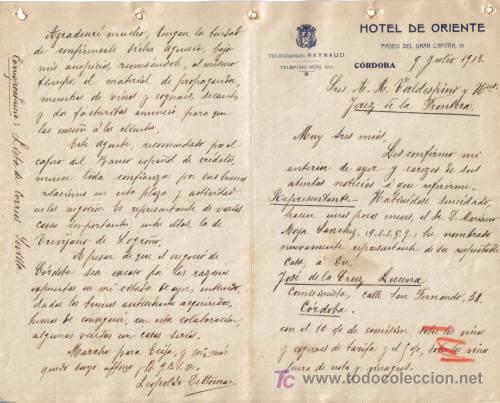 HOTEL DE ORIENTE
PASEO DEL GRAN CAPITÁN, 15
TELEGRAMAS: RAYNAUD
TELÉFONO NÚM. 201
CÓRDOBA 9 Julio 1913.
Sres A. R. Valdespino y Hno.
Jerez de la Frontera
Muy Sres mios.
Les confirmo mi
anterior de ayer y carezco de sus
atentas noticias á que referirme.
Representante. Habiéndose suicidado,
hacen unos pocos meses, el Sr. D. Mariano
Moya Sanchez, he nombrado
nuevamente representante de su respetable
casa, á Dn.
José de la Cruz Lucena
Comisionista, calle San Fernando, 38.
Córdoba.
con el 10 % de comisión sobre los vinos
y cognacs de tarifa y el 5 %, sobre los vinos
fuera de nota y vinagres.
Agradeceré mucho, tengan la bondad
de confirmarle dicha agencia, bajo
mis auspicios, remitiéndole, al mismo
tiempo, el material de propaganda,
muestras de vinos y cognacs, secantes,
y dos facturitas anuncio, para que
las enseñe á los clientes.
Este agente, recomendado por el
cajero del Banco español de crédito,
merece toda confianza por sus buenas
relaciones en esta plaza y actividad
en los negocios. Es representante de varias
casas importantes, entre ellas, la de
Trevijano de Logroño.
A pesar de que el negocio de
Córdoba sea escaso por las razones
expuestas en mi estado de ayer,
dados los buenos antecedentes adquiridos,
hemos de conseguir, con esta colaboración
algunas ventas con casas serias.
Marcho para Ecija, y sin más
quedo suyo affmo
Leopoldo
Correspondencia: Lista de Correos Sevilla
todocoleccion
todocoleccion.net